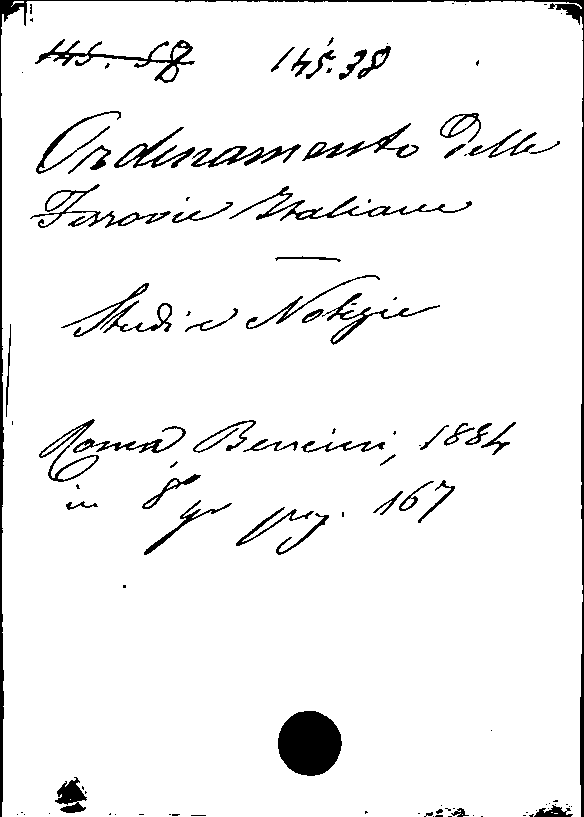 145. 58 145.38
Ordinamento delle
Ferrovie Italiane
—
Studi e Notizie
Roma, Bencini, 1884
in 8° gr pag. 167